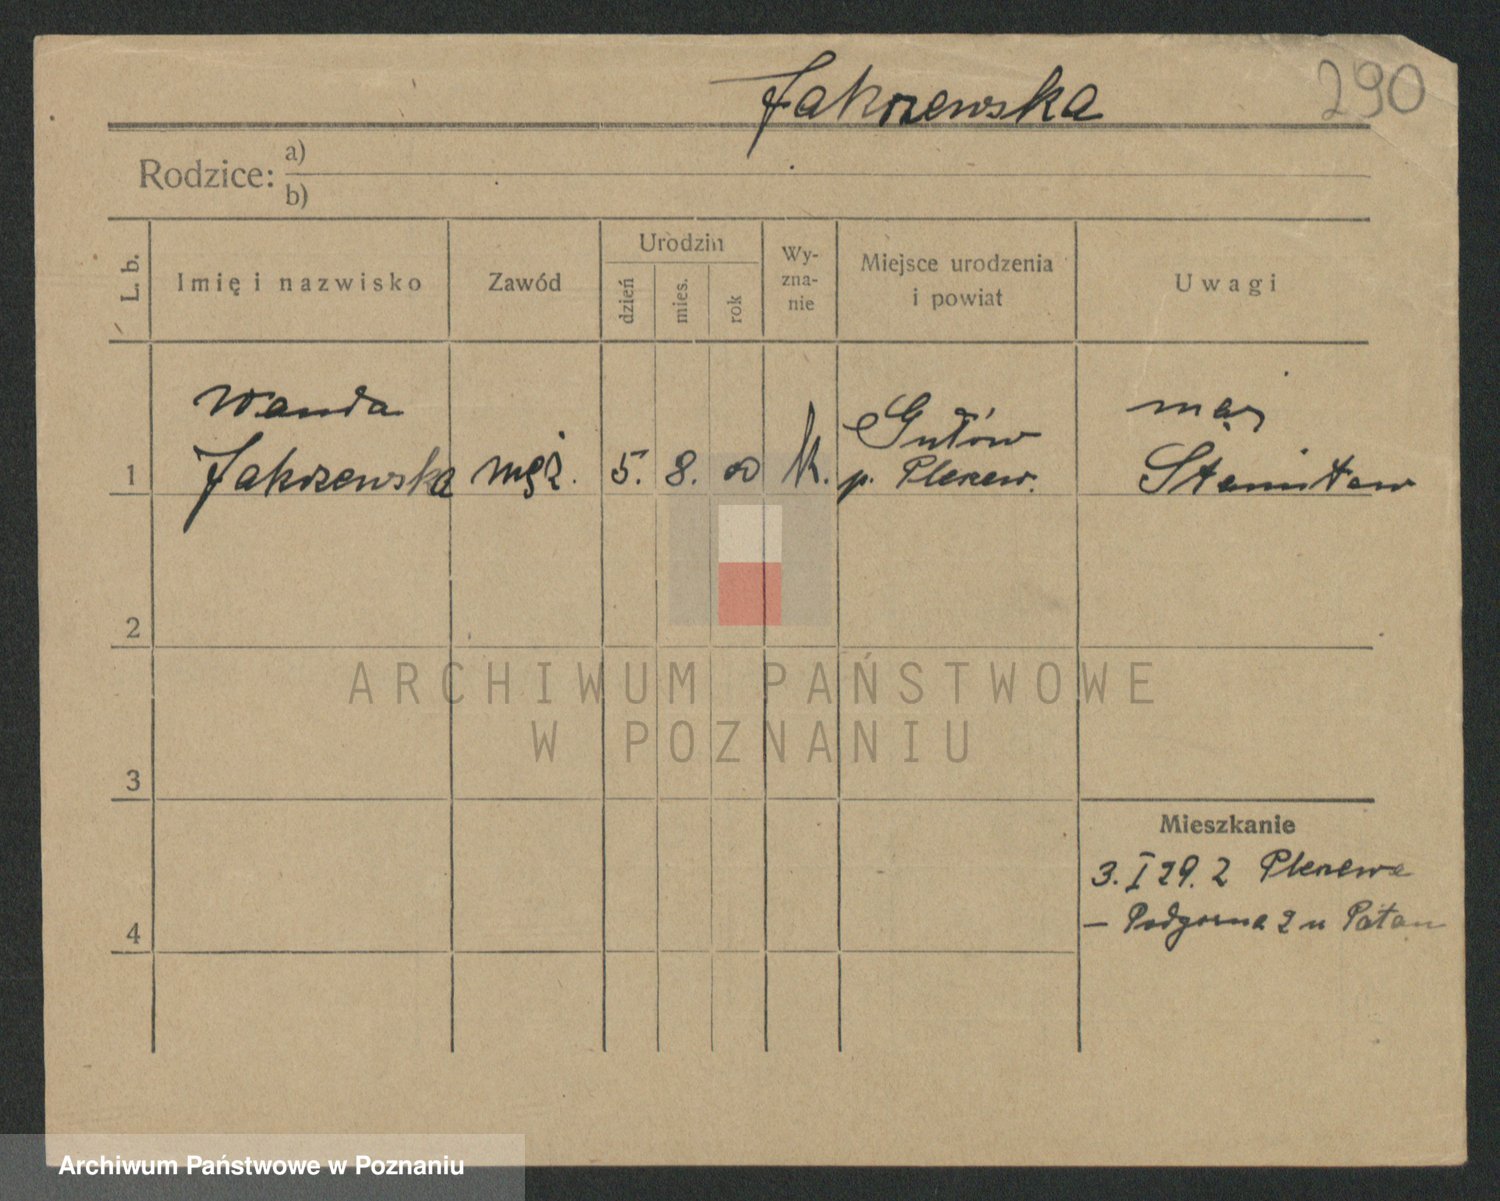 Jakrzewska 290
Rodzice: a)
b)
L. b.
Imię i nazwisko
Zawód
Urodzin
dzień
mies.
rok
Wy-
zna-
nie
Miejsce urodzenia
i powiat
Uwagi
1
Wanda
Jakrzewska
męż.
5. 8. 00
k.
Gutów
p. Pleszew.
mąż
Stanisław
2
3
4
Mieszkanie
3. I 29. z Pleszewa
— Podgorna 2 u
ARCHIWUM PAŃSTWOWE
W POZNANIU
Archiwum Państwowe w Poznaniu